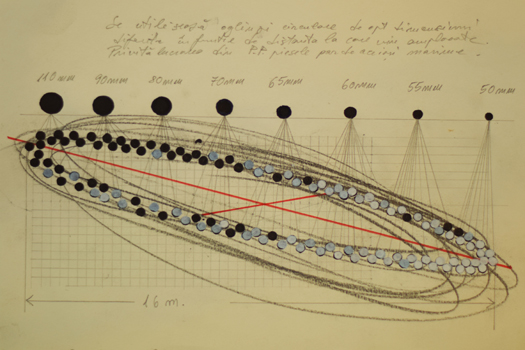 Se utilizează oglinzi circulare de opt dimensiuni
diferite în funcție de distanța la care vin amplasate.
Privită lucrarea din P.P. piesele par de aceeași mărime.
110mm 90mm 80mm 70mm 65mm 60mm 55mm 50mm
16 m.